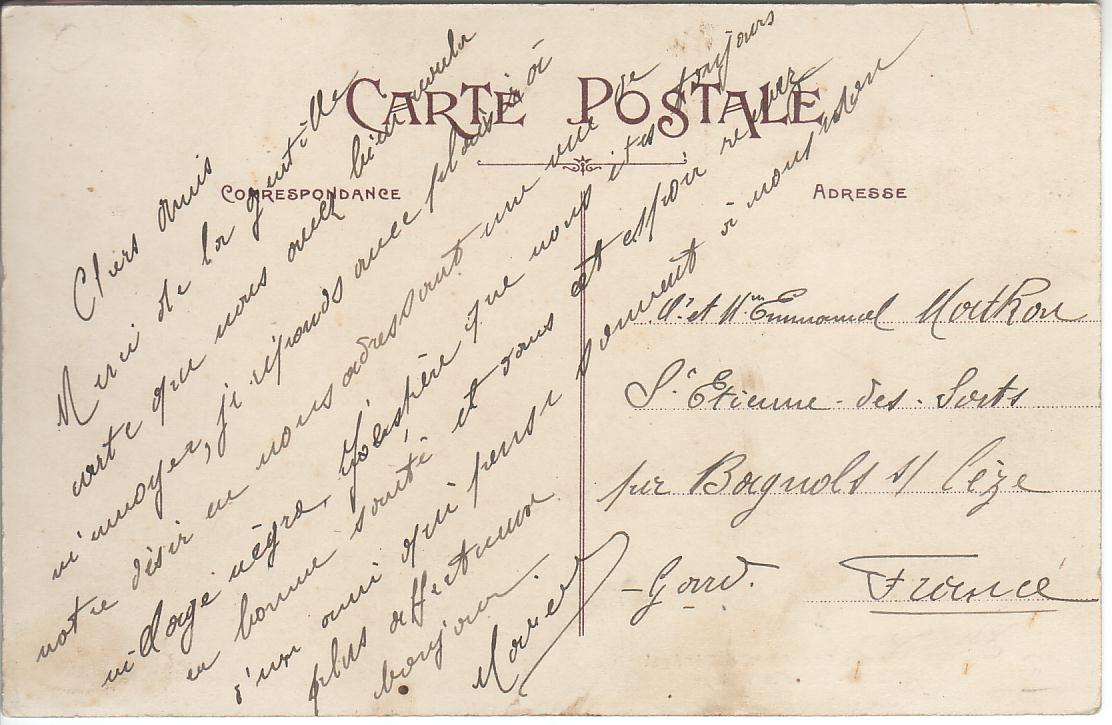 CARTE POSTALE
CORRESPONDANCE
ADRESSE
Chers amis
Merci de la gentille
carte que vous avez bien voulu
m'envoyer, je réponds avec plaisir à
votre désir en vous adressant une vue de
village nègre. J'espère que vous êtes toujours
en bonne santé et vous et espoir recevez
d'un ami qui pense souvent à vous son
plus affectueux
bonjour
Mr et Mme Emmanuel Mathon
St Etienne-des-Sorts
par Bagnols s/ Cèze
-Gard.
France